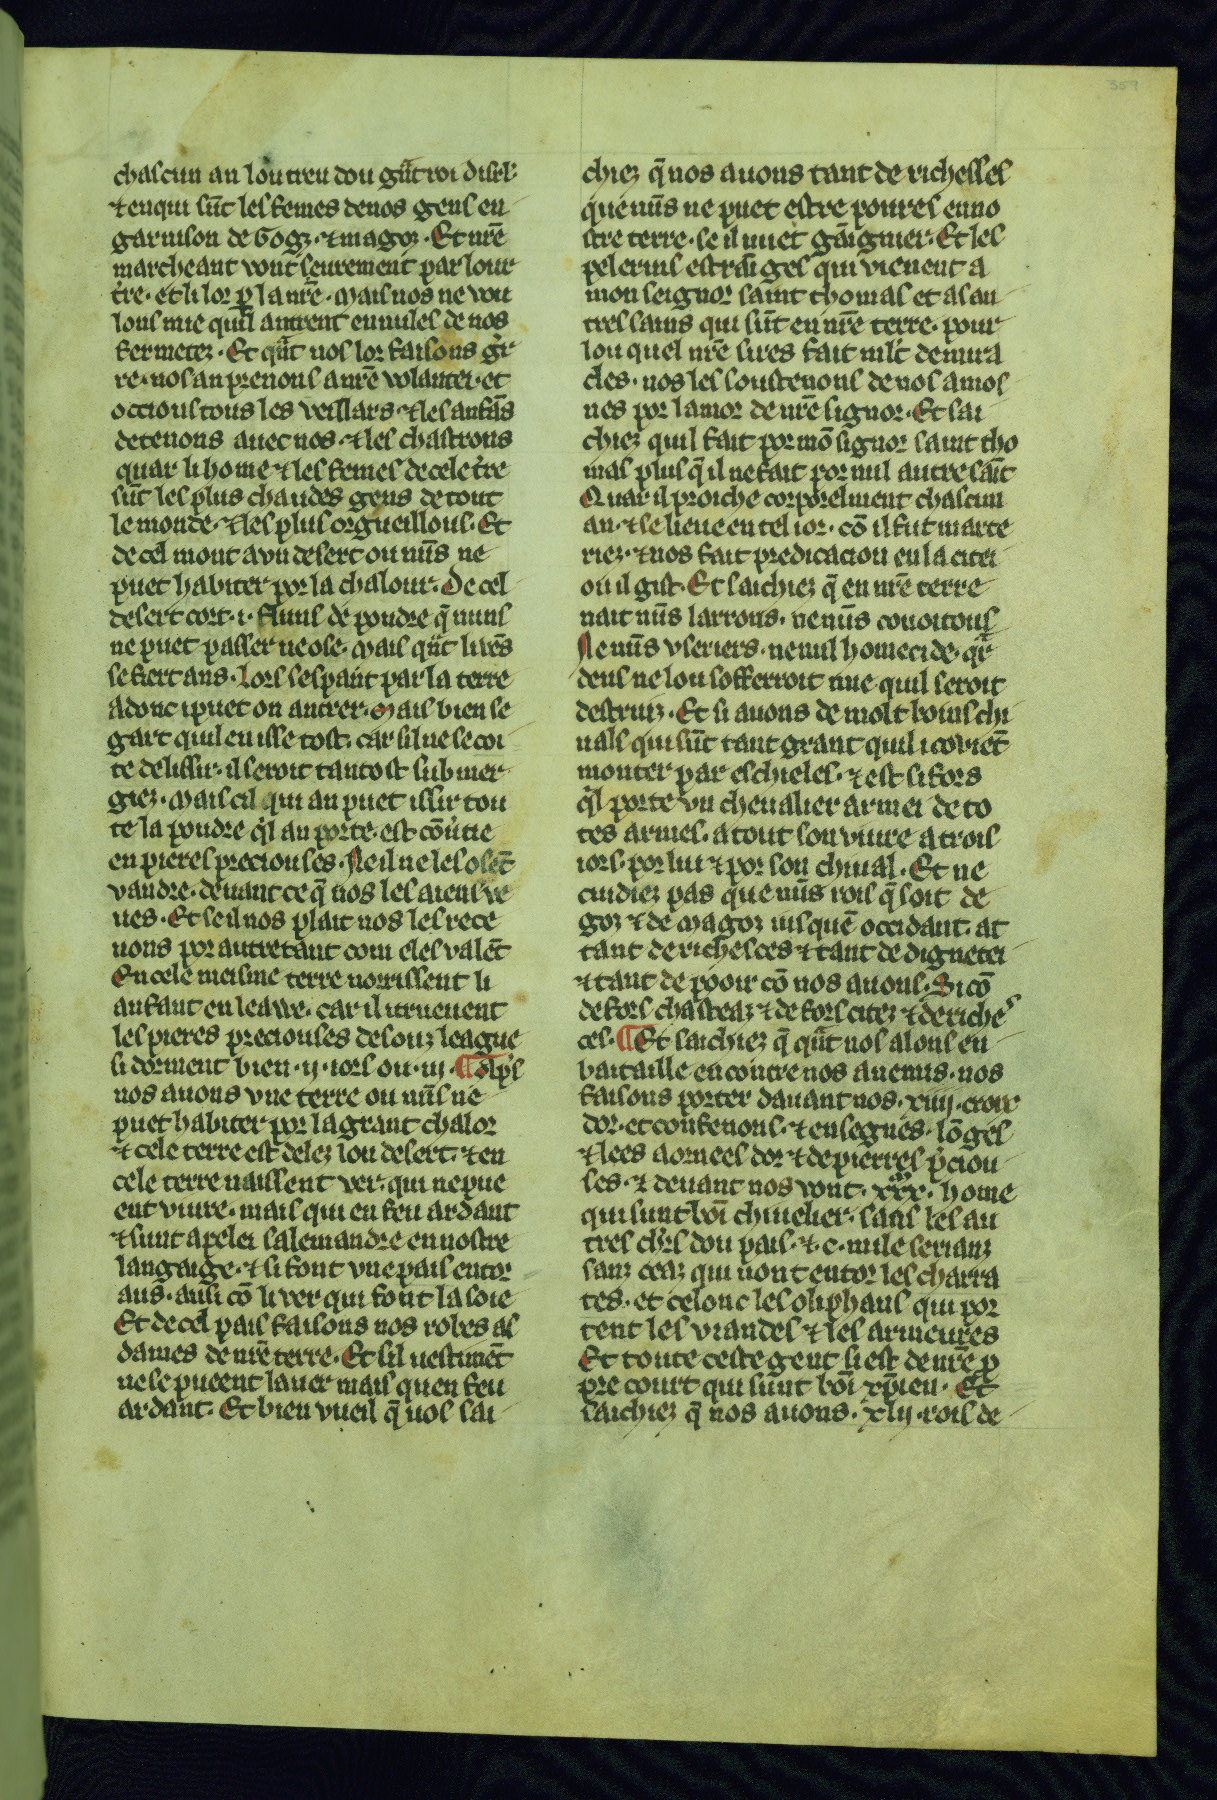 359
chascun an lou treu dou gͣt roi disrl'
⁊ enqui sūt les femes de nos gens en
garnison de Gogz ⁊ magoz. Et nr̄e
marcheant vont seurement par lour
t're. et li lor ꝑ la nr̄e. Mais nos ne vou
lons mie quil antrent en nules de nos
fermetez. Et qͣt nos lor faisons gr̄
re. nos an prenons a nr̄e volantei. et
occions tous les veillars. ⁊ les anfās
detenons auec nos. ⁊ les chastrons
quar li home ⁊ les femes de cele t're
sūt les plus chaudes gens de tout
le monde. ⁊ les plus orgueillous. Et
de cel mont a vn desert ou nūs ne
puet habiter por la chalour. De cel
desert cort .i. fluns de poudre q̄ nuns
ne puet passer ne ose. Mais qͣt li vēs
se fiert ans. Lors sespant par la terre
Adonc i puet on antrer. Mais bien se
gart quil en isse tost. car sil ne se coi
te de lissir. il seroit tantost submer
giez. Mais cil qui an puet issir tou
te la poudre qͥl an porte. est cōu'tie
en pieres preciouses. Ne il ne les osēt
vandre. deuant ce q̄ nos les aiens ve
ues. Et se il nos plait nos les rece
uons por autretant com eles valēt
En cele meisme terre norrissent li
anfant en leawe. car il i trueuent
les pieres preciouses desouz league
si dorment bien .ij. iors ou .iij. ¶ Olp's
nos auons vne terre ou nūs ne
puet habiter por la grant chalor
⁊ cele terre est delez lou desert. ⁊ en
cele terre naissent ver. qui ne pue
ent viure. mais qui en feu ardant
⁊ sunt apelei salemandre en nostre
langaige. ⁊ si font vne pais entor
aus. ausi cō li ver qui font la soie
Et de cel pais faisons nos robes as
dames de nr̄e terre. Et sil uestimēt
ne se pueent lauer mais quen feu
ardant. Et bien vueil q̄ uos sai
chiez q̄ nos auons tant de richesses
que nūs ne puet estre poures en no
stre terre. se il uuet gāignier. Et les
pelerins estrāiges qui vienent a
mon seignor saint thomas et as au
tres sains qui sūt en nr̄e terre. pour
lou quel nr̄e sires fait mlt' de mira
cles. nos les soustenons de nos amos
nes por lamor de nr̄e signor. Et sai
chiez quil fait por mō signor saint tho
mas plus q̄ il ne fait por nul autre saīt
Quar il proiche corporelment chascun
an. ⁊ se lieue en tel ior. cō il fut marte
riez. ⁊ nos fait predicacion en la citei
ou il gist. Et saichiez q̄ en nr̄e terre
nait nūs larrons. ne nūs couoitous
Ne nūs vseriers. ne nul homecide. qr̄
deus ne lou sofferroit mie quil seroit
destruiz. Et si auons de molt boins chi
uals qui sūt tant grant quil i coviēt
monter par eschieles. ⁊ est si fors
qͥl porte vn cheualier armei de to
tes armes. a tout son viure a trois
iors. por lui ⁊ por son chiual. Et ne
cuidiez pas que nūs rois q̄ soit de
goz ⁊ de Magoz iusquē occidant. at
tant de richesces ⁊ tant de dignetei
⁊ tant de pooir cō nos auons. Si cō
de fors chasteaz ⁊ de fors citez ⁊ de riche
ces. ¶ Et saichiez q̄ qͣt nos alons en
bataille encontre nos anemis. nos
faisons porter dauant nos .xiiij. croix
dor. et confenons. ⁊ ensegnes. lōges
⁊ lees aornees dor ⁊ de pierres p̄ciou
ses. ⁊ deuant nos vont .xxx. home
qui sunt boī chiuelier. sans les au
tres ch'rs dou pais. ⁊ .c. mile serianz
sanz ceaz qui uont entor les charra
tes. et celonc les oliphans qui por
tent les viandes ⁊ les armeures
Et toute ceste gent si est de nr̄e ꝓ
pre court qui sunt boī xp̄ien. Et
saichiez q̄ nos auons .xlij. rois de